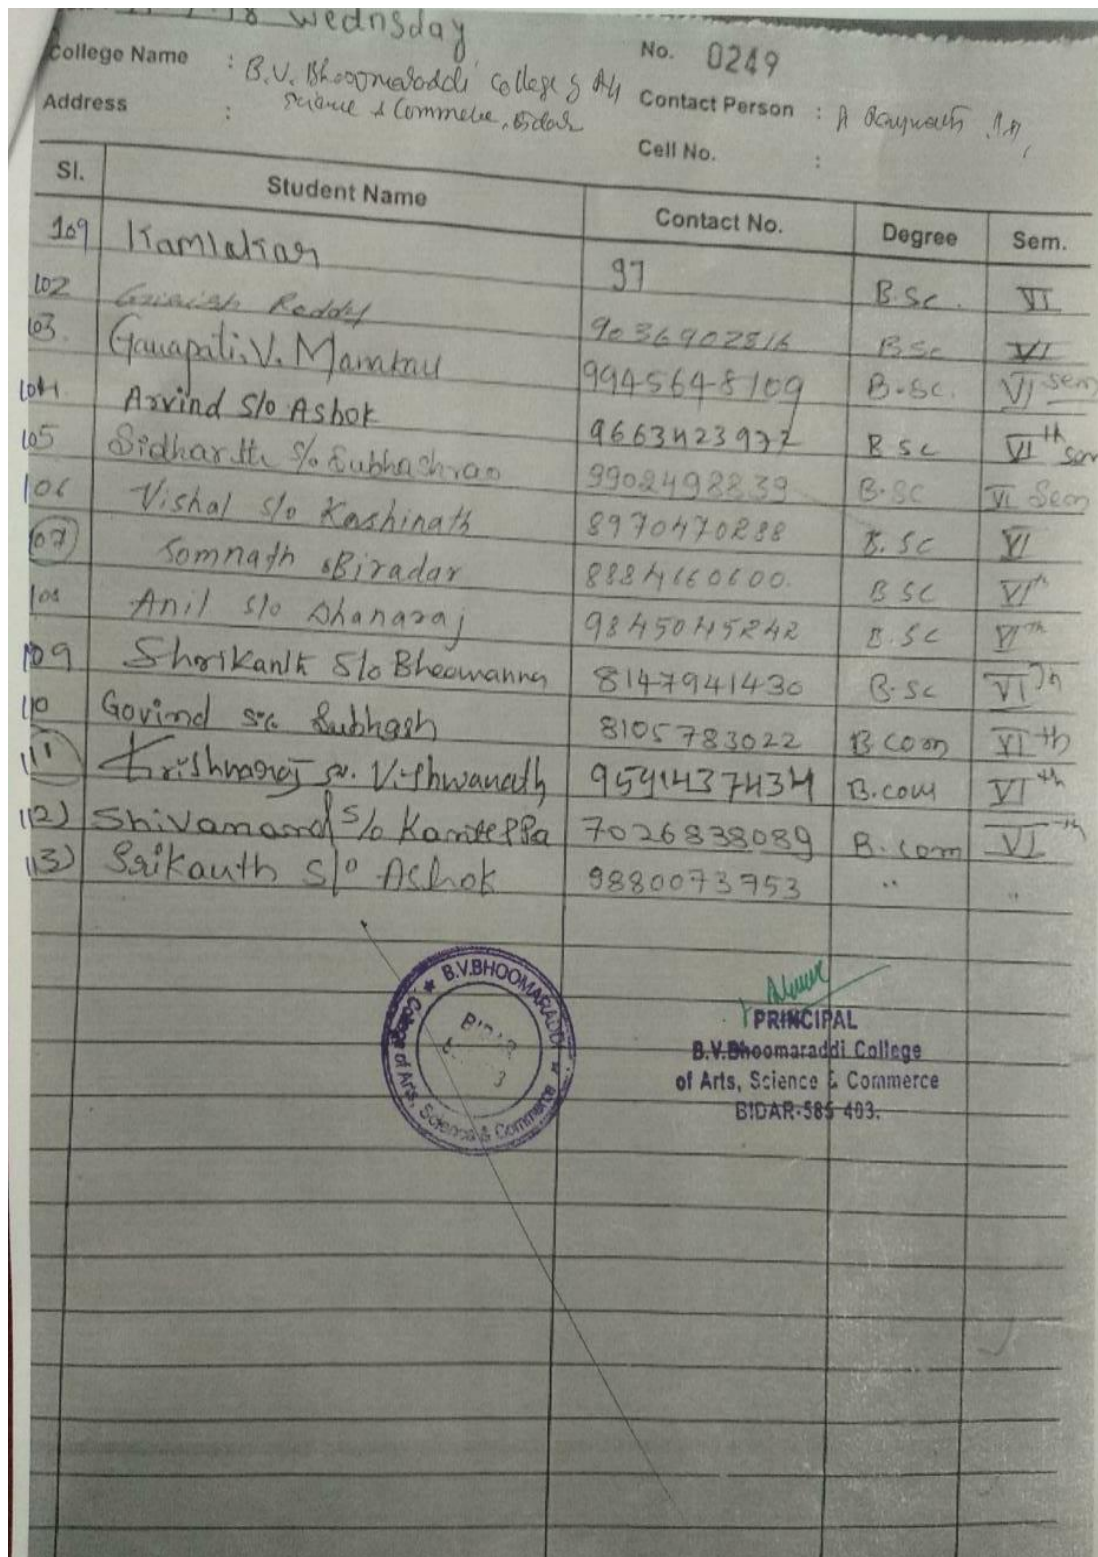 18 Wednsday
College Name : B.V. Bhoomaraddi College of Arts No. 0249
Science & Commerce, Bidar Contact Person :
Address :
Cell No. :
Sl. Student Name Contact No. Degree Sem.
109 Kamlakar 97 B.Sc. VI
102 Girish Reddy 9036902816 B.Sc VI
103. Ganapati. V. 9945648109 B.Sc. VI sem
104. Arvind S/o Ashok 9663423972 B Sc VI th sem
105 Sidharth S/o Subhashrao 9902498839 B.SC VI Sem
106 Vishal S/o Kashinath 8970470288 B.SC VI
107 Somnath Biradar 8884160600. B SC VI th
108 Anil S/o Dhanaraj 9845045242 B.SC VI th
109 Shrikanth S/o Bheemanna 8147941430 B.Sc VI th
110 Govind S/o Subhash 8105783022 B Com VI th
111 Krishnaraj S/o. Vishwanath 9591437434 B.com VI th
112) Shivanand S/o 7026838089 B. Com VI th
113) Srikanth S/o Ashok 9880073753 " "
B.V.BHOOMARADDI
College of Arts, Science & Commerce
BIDAR
PRINCIPAL
B.V.Bhoomaraddi College
of Arts, Science & Commerce
BIDAR-585 403.